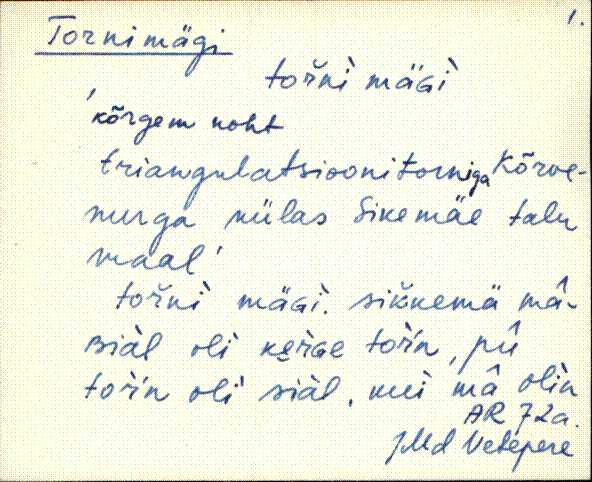 1.
Tornimägi
tořnì mäGì
'kõrgem koht
triangulatsioonitorniga Kõrve-
nurga külas Sikemäe talu
maal'
tořnì mäGì. sikkemä mâ-
siàl oli kerGe tořn, pû
tořn olì siàl, kui mâ olìn
AR 72a.
JMd Vetepere